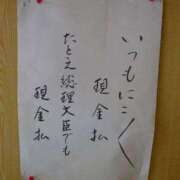 いつもにこく
現金払
たとえ総理大臣でも
現金払